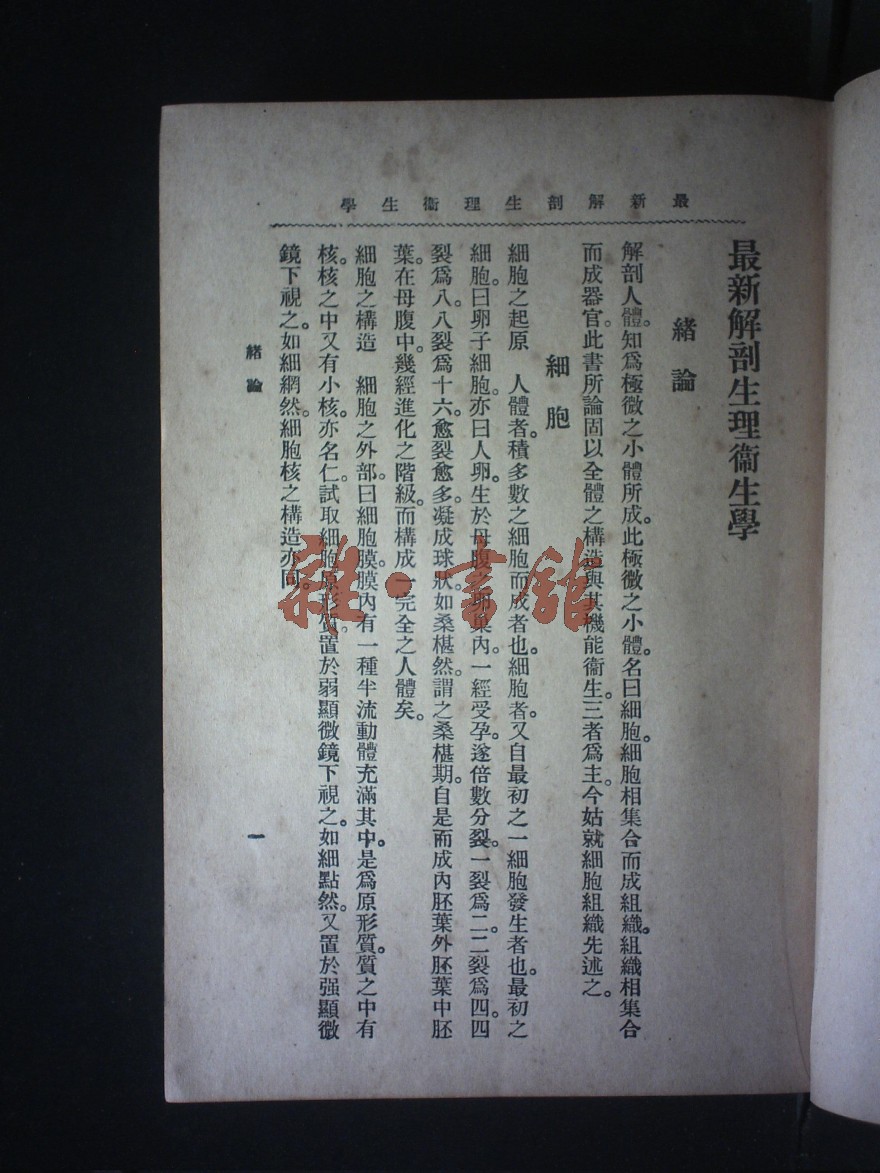 最新解剖生理衞生學
最新解剖生理衞生學
緒論
解剖人體。知爲極微之小體所成。此極微之小體。名曰細胞。細胞相集合而成組織。組織相集合
而成器官。此書所論固以全體之構造與其機能衞生。三者爲主。今姑就細胞組織先述之。
細胞
細胞之起原　人體者。積多數之細胞而成者也。細胞者。又自最初之一細胞發生者也。最初之
細胞。曰卵子細胞。亦曰人卵。生於母腹之卵巢內。一經受孕。遂倍數分裂。一裂爲二。二裂爲四。四
裂爲八。八裂爲十六。愈裂愈多。凝成球狀。如桑椹然。謂之桑椹期。自是而成內胚葉外胚葉中胚
葉。在母腹中。幾經進化之階級。而構成一完全之人體矣。
細胞之構造　細胞之外部。曰細胞膜。膜內有一種半流動體充滿其中。是爲原形質。質之中有
核。核之中又有小核。亦名仁。試取細胞原形質。置於弱顯微鏡下視之。如細點然。又置於强顯微
鏡下視之。如細網然。細胞核之構造亦同。
緒論
一
雜·書館